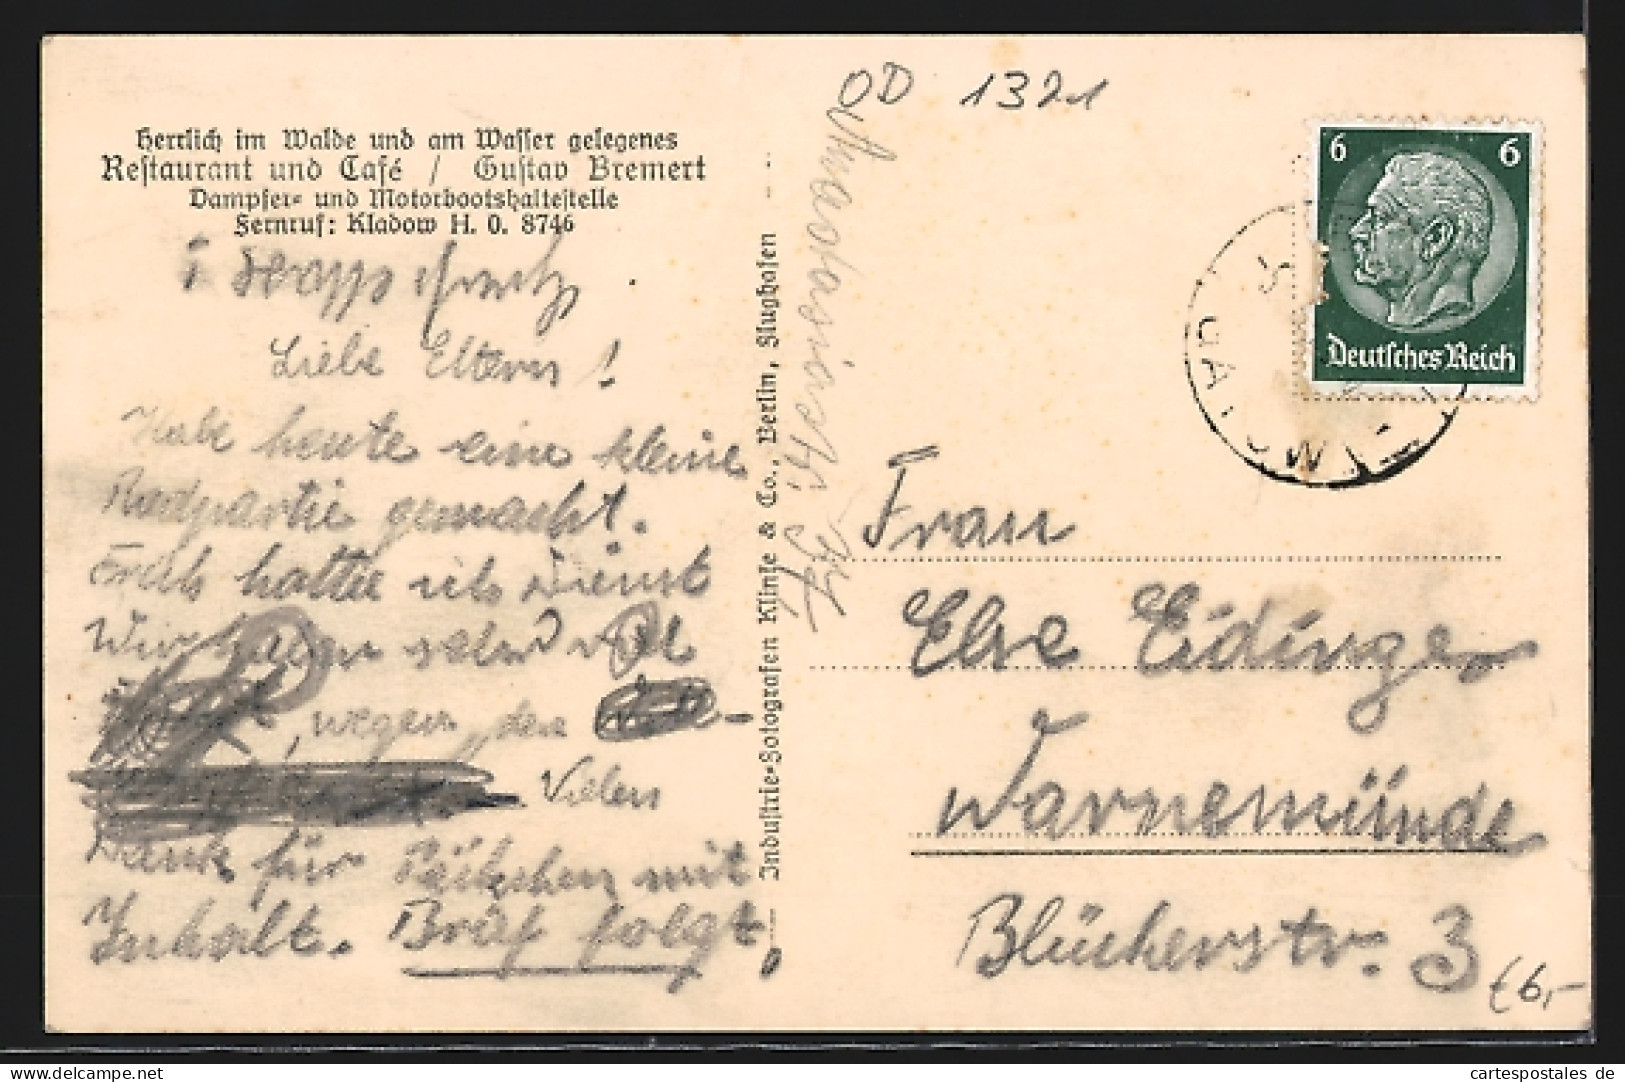 Herrlich im Walde und am Wasser gelegenes
Restaurant und Café / Gustav Bremert
Dampfer- und Motorbootshaltestelle
Fernruf: Kladow H. 0. 8746
Liebe Eltern!
Habe heute eine kleine
Radpartie gemacht.
Früh hatte ich Dienst
Wir haben sehr viel
, wegen den
Vielen
Dank für Päckchen mit
Inhalt. Brief folgt,
Industrie-Fotografen Klinke & Co., Berlin, Flughafen
OD 1321
6 6
Deutsches Reich
Frau
Else Eidinger
Warnemünde
Blücherstr. 3
€6,-
www.delcampe.net
cartespostales de